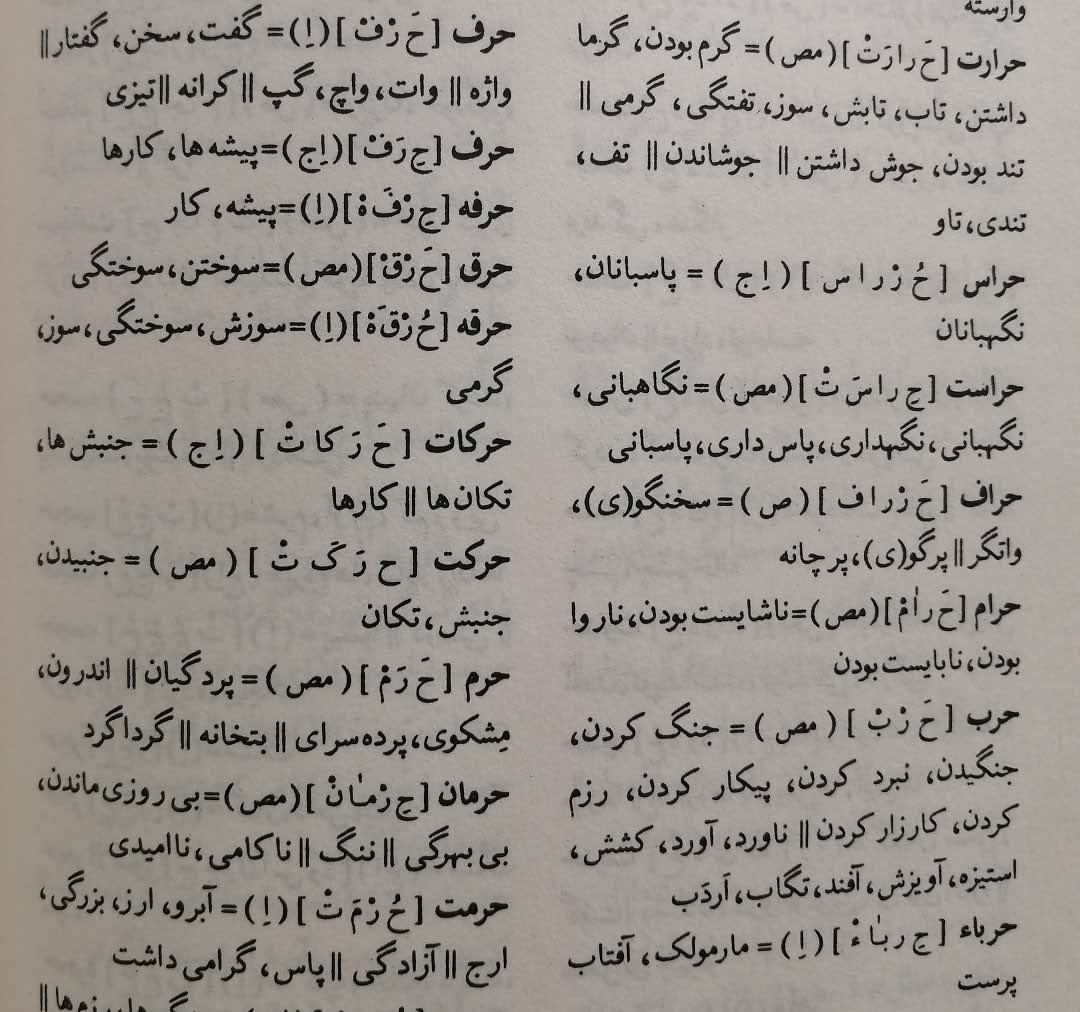 وارسته
حرارت [حَ رارَتْ] (مص) = گرم بودن، گرما
داشتن، تاب، تابش، سوز، تفتگی، گرمی ||
تند بودن، جوش داشتن || جوشاندن || تف،
تندی، تاو
حراس [حُ رْ ا س] (اِ ج) = پاسبانان،
نگهبانان
حراست [حِ راسَ تْ] (مص) = نگاهبانی،
نگهبانی، نگهداری، پاس داری، پاسبانی
حراف [حَ رْ ا ف] (ص) = سخنگو(ی)،
واتگر || پرگو(ی)، پر چانه
حرام [حَ رٰامْ] (مص) = ناشایست بودن، ناروا
بودن، نابایست بودن
حرب [حَ رْ بْ] (مص) = جنگ کردن،
جنگیدن، نبرد کردن، پیکار کردن، رزم
کردن، کارزار کردن || ناورد، آورد، کشش،
استیزه، آویزش، آفند، تگاب، اَردَب
حرباء [حِ ربٰاءْ] (اِ) = مارمولک، آفتاب
پرست
حرف [حَ رْفْ] (اِ) = گفت، سخن، گفتار ||
واژه || وات، واچ، گپ || کرانه || تیزی
حرف [حِ رَفْ] (اِ ج) = پیشه ها، کارها
حرفه [حِ رْفَهْ] (اِ) = پیشه، کار
حرق [حَ رْقْ] (مص) = سوختن، سوختگی
حرقه [حُ رْقَهْ] (اِ) = سوزش، سوختگی، سوز،
گرمی
حرکات [حَ رَ کا تْ] (اِ ج) = جنبش ها،
تکان ها || کارها
حرکت [ح رَ کَ تْ] (مص) = جنبیدن،
جنبش، تکان
حرم [حَ رَمْ] (مص) = پردگیان || اندرون،
مِشکوی، پرده سرای || بتخانه || گرداگرد
حرمان [حِ رْمٰانْ] (مص) = بی روزی ماندن،
بی بهرگی || ننگ || ناکامی، ناامیدی
حرمت [حُ رْمَ تْ] (اِ) = آبرو، ارز، بزرگی،
ارج || آزادگی || پاس، گرامی داشت
رزم ها ||